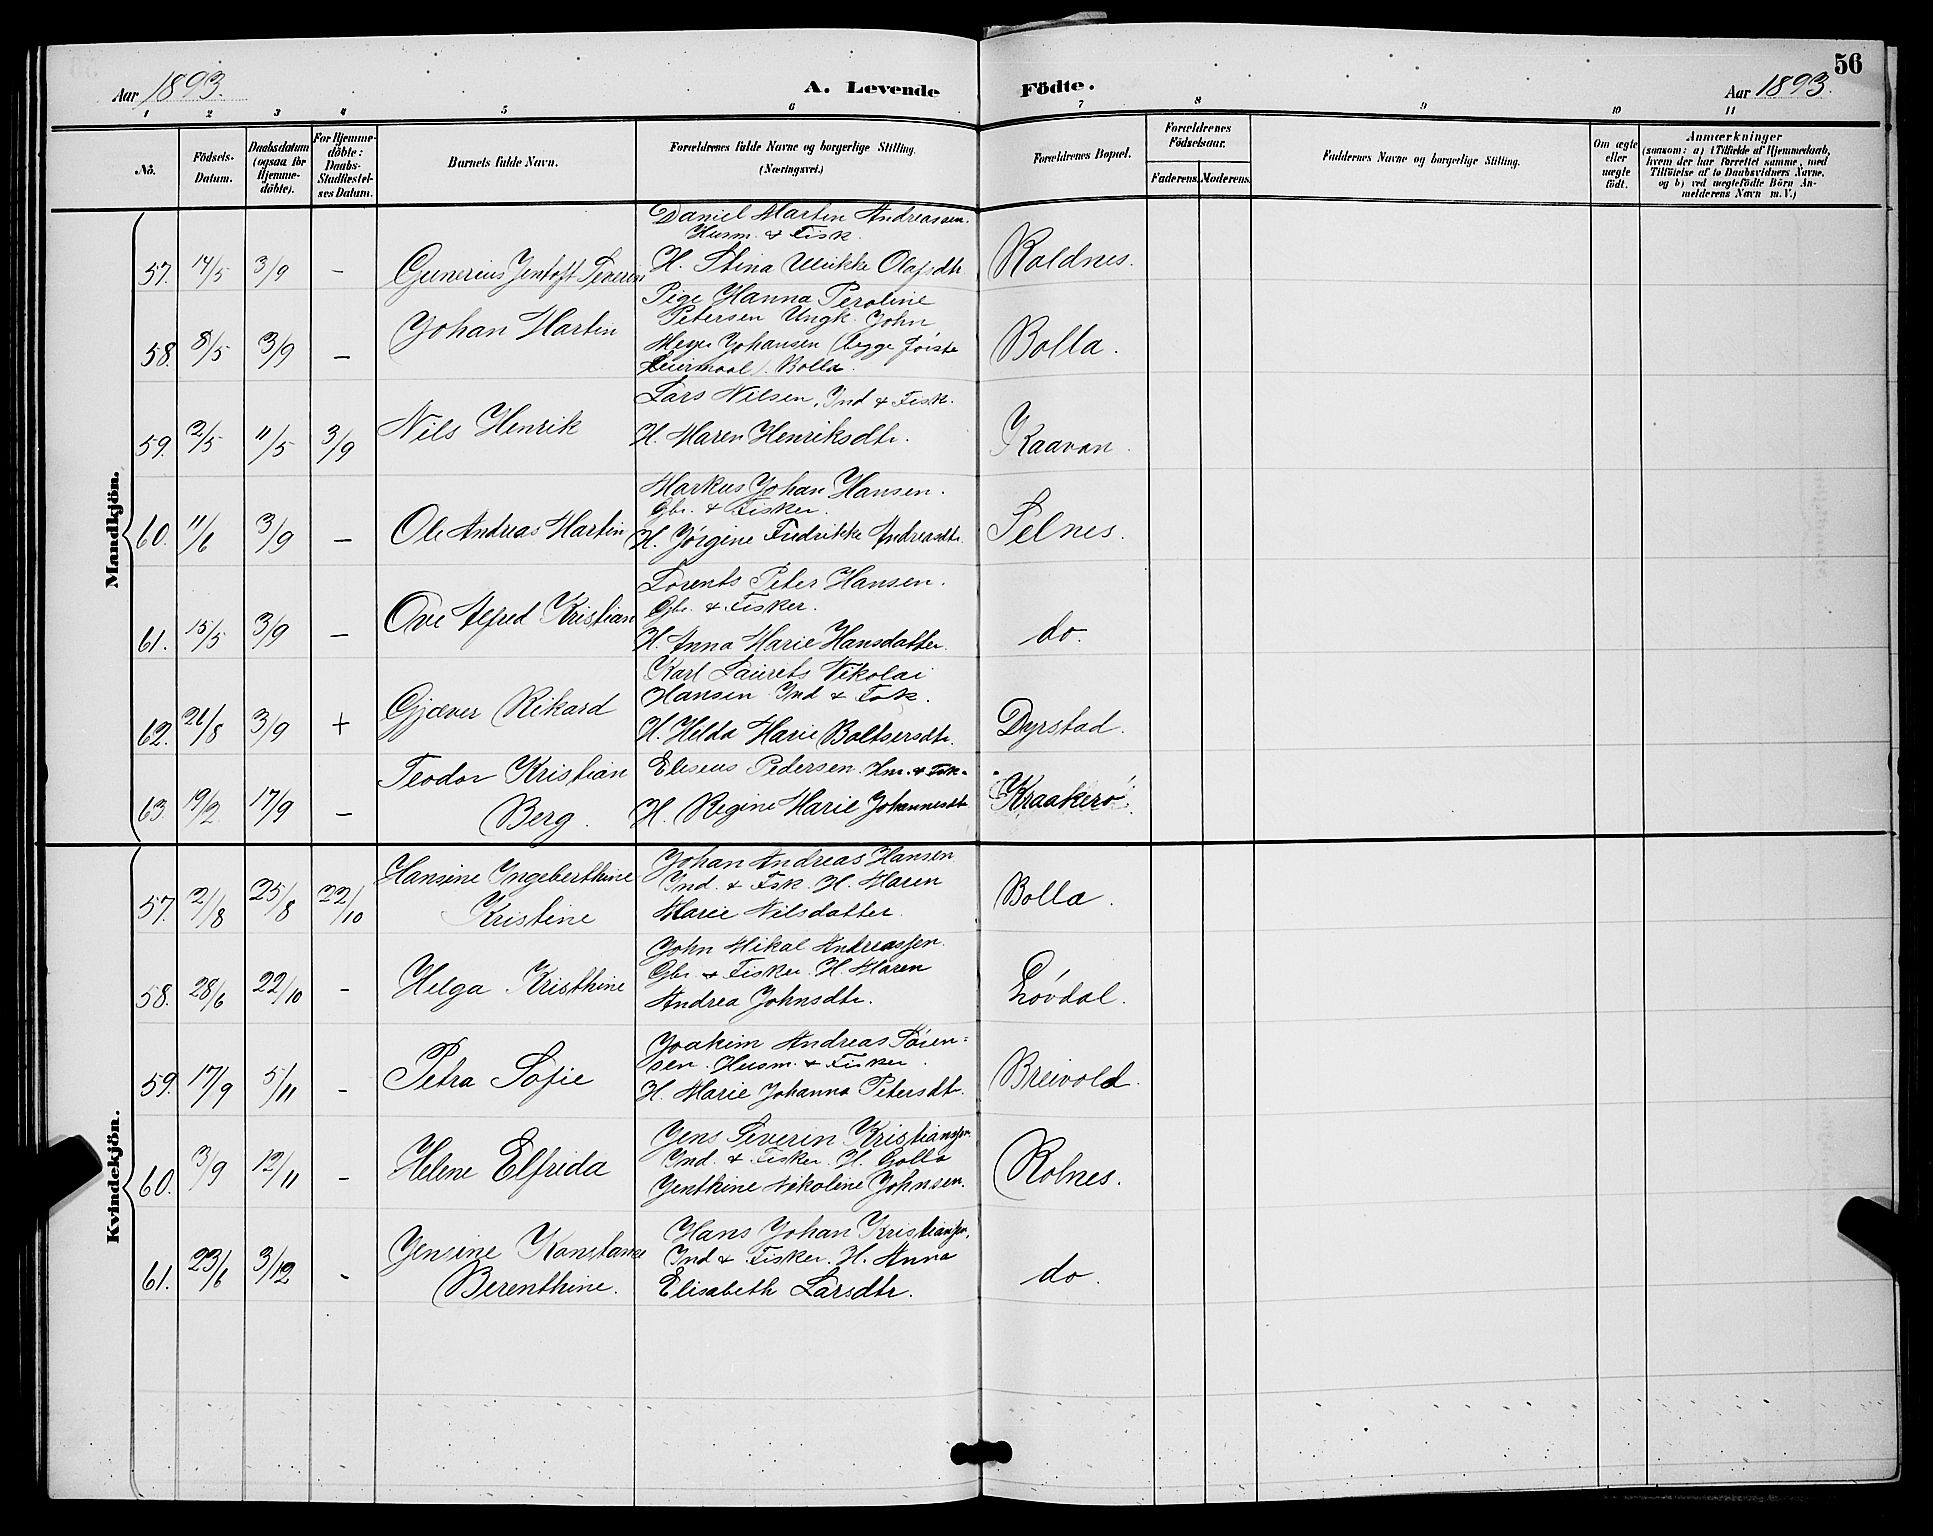 56
Aar 1893.
A. Levende Födte.
Aar 1893.
1 2 3 4 5 6 7 8 9 10 11
No.
Födsels-Datum.
Daabsdatum (ogsaa for Hjemme-döbte).
For Hjemme-döbte: Daabs-Stadfæstel-ses Datum.
Barnets fulde Navn.
Forældrenes fulde Navne og borgerlige Stilling. (Næringsvei.)
Forældrenes Bopæl.
Forældrenes Födselsaar.
Faderens. Moderens.
Faddernes Navne og borgerlige Stilling.
Om ægte eller uægte födt.
Anmærkninger
(saasom: a) i Tilfælde af Hjemmedaab, hvem der har forrettet samme, med Tilföielse af to Daabsvidners Navne, og b) ved uægtefödte Börn An-melderens Navn m. V.)
Mandkjön.
Daniel Martin Andreassen.
Husm. & Fisk.
57. 14/5 3/9 - Gunerius Jentoft Severin H. Stina Ulrikke Olafsdtr Roldnes.
Pige Hanna Peroline
Petersen Ungk. John
58. 8/5 3/9 - Johan Martin Meyer Johansen (begge förste Bolla.
Leiermaal). Bolla.
Lars Nilsen, Ind & Fisk.
59. 2/5 11/5 3/9 Nils Henrik H. Maren Henriksdtr. Kaavan.
Markus Johan Hansen.
Gbr. & Fisker.
60. 11/6 3/9 - Ole Andreas Martin H. Jörgine Fredrikke Andreasdtr. Selnes.
Lorents Peter Hansen.
Gbr. & Fisker.
61. 15/5 3/9 - Ove Alfred Kristian H. Anna Marie Hansdatter. do.
Karl Laurets Nikolai
Hansen Ind & Fsk.
62. 21/8 3/9 + Gjæver Rikard H. Hilda Marie Baltsersdtr. Dyrstad.
Teodor Kristian Eliseus Pedersen. Hm. & Fsk.
63. 19/2 17/9 - Berg. H. Regine Marie Johannesdtr Kraakerö.
Kvindekjön.
Hansine Ingeberthine Johan Andreas Hansen
57. 2/8 25/8 22/10 Ind. & Fsk. H. Maren Bolla.
Kristine Marie Nilsdatter.
John Mikal Andreassen.
Gbr. & Fisker. H. Maren
58. 28/6 22/10 - Helga Kristhine Andrea Johnsdtr. Lövdal.
Joakim Andreas Sören=
sen. Husm. & Fisker.
59. 17/9 5/11 - Petra Sofie H. Marie Johanna Petersdtr. Breivold.
Jens Severin Kristianssen.
Ind. & Fisker. H. Golla
60. 3/9 12/11 - Helene Elfrida Jenthine Nikoline Johnsen. Rolnes.
Hans Johan Kristianssen.
Jensine Konstanse Ind & Fisker. H. Anna
61. 23/6 3/12 - Berenthine. Elisabeth Larsdtr. do.